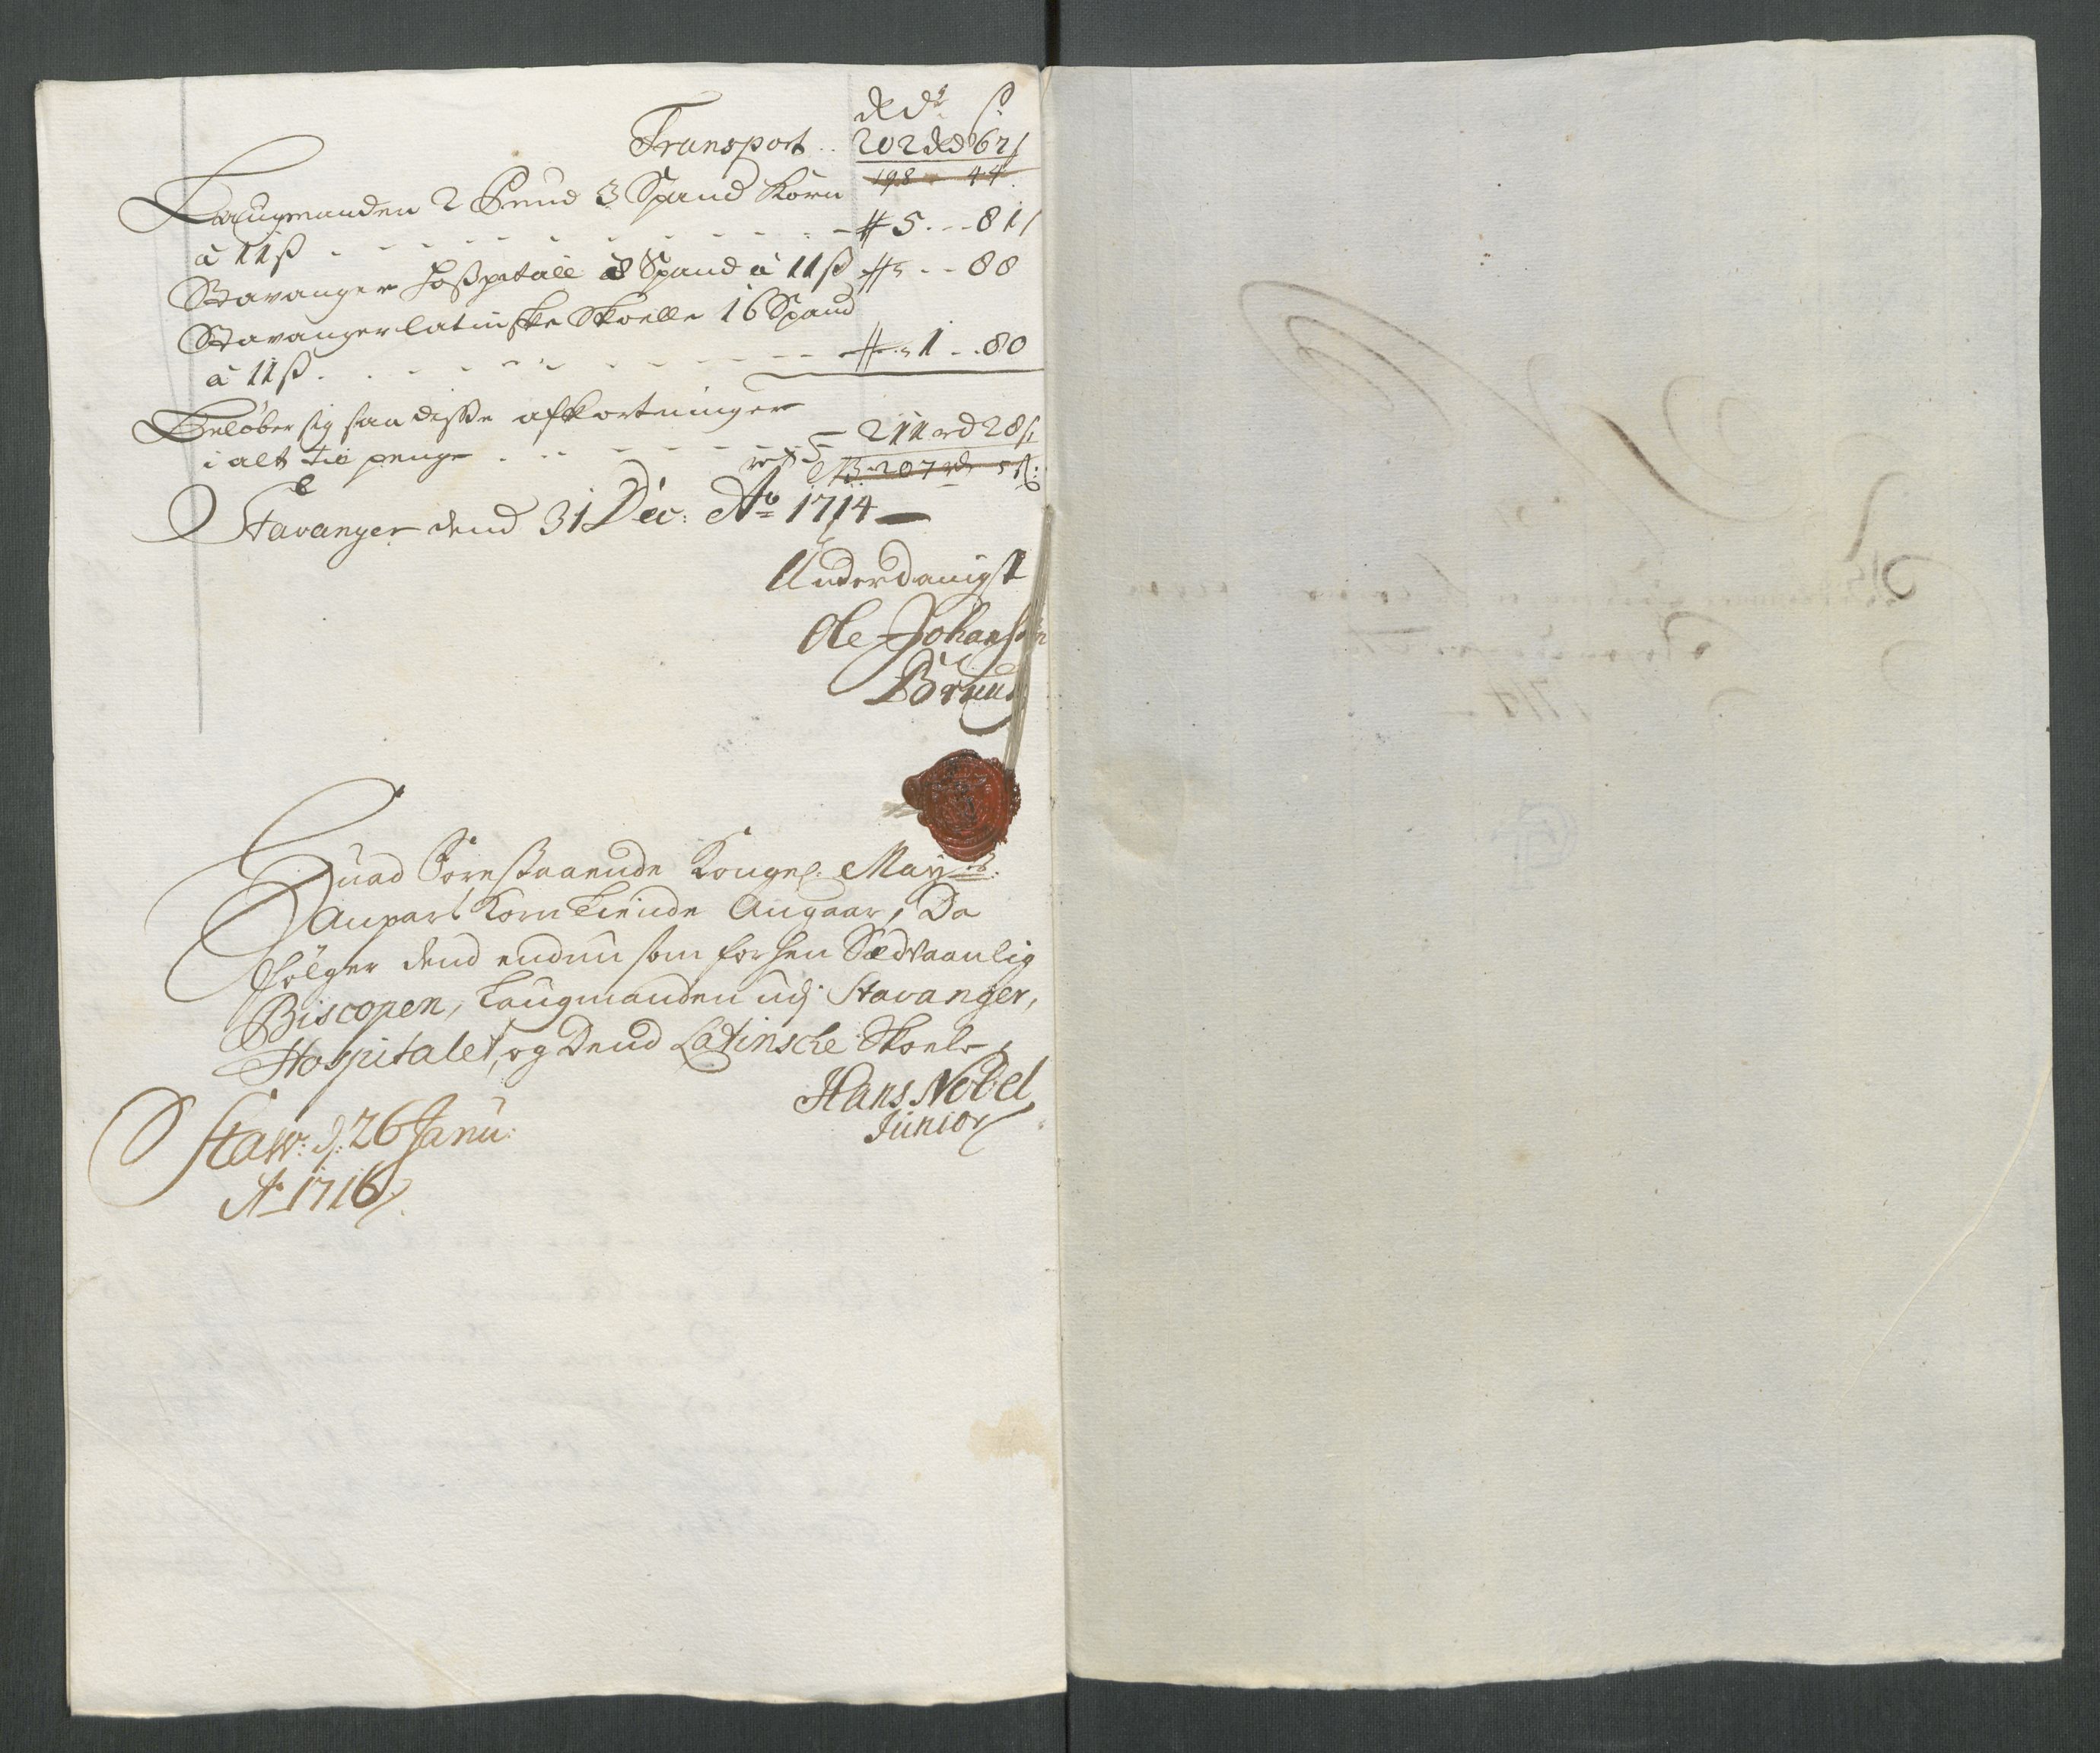 Rdr ß
Transport .. 202 rd 67 ß
198 – 44
Laugmanden 2 Pund 3 Spand Korn
â 11 ß . - - - - - - - - - # 5 . - - 81 ß
Stavanger Hoßpitall 8 Spand â 11 ß # - - 88
Stavanger latinske Skoelle 16 Spand
â 11 ß . . - - - - - - - # 1 - . 80
Beløber sig saa disse afkortninger
i alt til penge . . - - - - - 211 rd 28 ß
207 rd 5 ß
Stavanger dend 31 Dec: Ao 1714
Underdanigst
Ole Johansen
Bruun
Huad Forestaaende Kongel. Mayts.
Anpart Korn Tiende Angaar, Da
følger dend endnu som forhen Sædvaanlig
Biscopen, Laugmanden udj Stavanger,
Hospitalet, og Dend Latinsche Skoele
Hans Nobel
Junior
Staw: d: 26 Janu:
Ao 1716